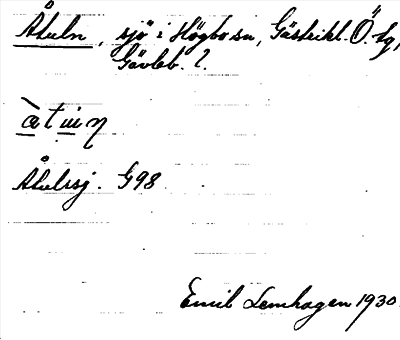 Åtuln, sjö i Högbo sn, Gästrikl. Ö. tg,
Gävleb. l.
àtuiŋ
Åtulnsj. G98
Emil Lemhagen 1930.